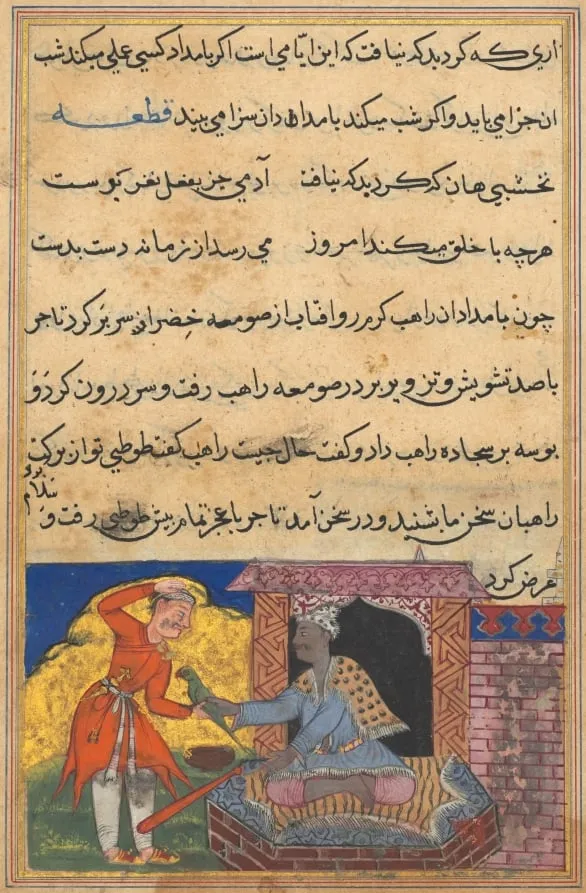 آری که کرد بد که نیافت که این ایامی است اکر بامداد کسی عملی میکند شب
آن جزا می یابد و اکر شب میکند بامدادان سزا می بیند قطعه
نخشبی هان که کرد بد که نیافت آدمی جز بفعل نغز نکوست
هرچه با خلق میکند امروز می رسد از زمانه دست بدست
چون بامدادان راهب کرم رو افتاب از صومعه خضرا سر بر کرد تاجر
با صد تشویش و تزویر بر در صومعه راهب رفت و سر درون کرد و
بوسه بر سجاده راهب داد و کفت حال چیست راهب کفت طوطی توان برکت
راهبان سخن ما بشنید و در سخن آمد تاجر با عجز تمام پیش طوطی رفت و
سلام
عرض کرد